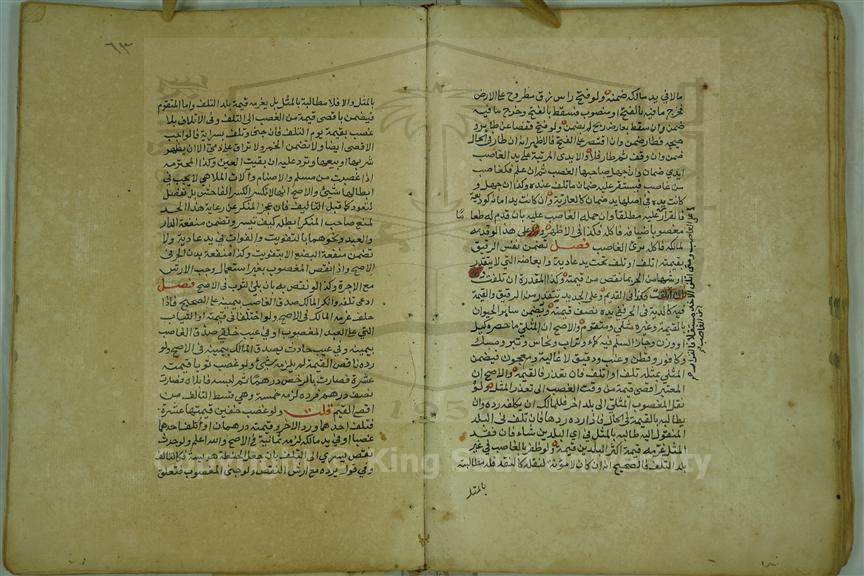 مالا في يد مالكه ضمنه ولو فتح راس زق مطروح على الارض
فخرج ما فيه بالفتح او منصوب فسقط بالفتح وخرج ما فيه
ضمن وان سقط بعارض ريح لم يضمن ولو فتح قفصا عن طاير و
هيجه فطار ضمن وان اقتصر على الفتح فالاظهر انه ان طار في الحال
ضمن وان وقف ثم طار فلا والايدي المترتبة على يد الغاصب
ايدي ضمان وان جهل صاحبها الغصب ثم ان علم فكغاصب
من غاصب فيستقر عليه ضمان ما تلف عنده وكذا ان جهل و
كانت يده في اصلها يد ضمان كالعارية وان كانت يد امانة كوديعة
فالقرار على الغاصب ومتى اتلف الاخذ مستقلا فالقرار عليه مطلقا وان حمله الغاصب عليه بان قدم له طعا ما
مغصوبا ضيافة فاكله فكذا في الاظهر وعلى هذا لو قدمه
لمالكه فاكله برئ الغاصب فصل تضمن نفس الرقيق
بقيمته اتلف او تلف تحت يد عادية وابعاضه التي لا يتقدر
ارشها من الحر بما نقص من قيمته وكذا المقدرة ان تلفت
وان اتلفت فكذا في القديم وعلى الجديد يتقدر من الرقيق والقيمة
فيه كالدية في الحر ففي يده نصف قيمته وتضمن ساير الحيوان
بالقيمة وغيره مثلي ومتقوم والاصح ان المثلي ما حصره كيل
او وزن وجاز السلم فيه كماء وتراب ونحاس وتبر ومسك
وكافور وقطن وعنب ودقيق لا غالية ومعجون فيضمن
المثلي بمثله تلف او اتلف فان تعذر فالقيمة والاصح ان
المعتبر اقصى قيمة من وقت الغصب الى تعذر المثل ولو
نقل المغصوب المثلي الى بلد اخر فللمالك ان يكلفه رده وان
يطالبه بالقيمة في الحال فاذا رده ردها فان تلف في البلد
المنقول اليه طالبه بالمثل في اي البلدين شاء فان فقد
المثل غرمه قيمة اكثر البلدين قيمة ولو ظفر بالغاصب في غير
بلد التلف فالصحيح انه ان كان لا مؤنة لنقله كالنقد فله مطالبته
بالمثل
٦٣
بالمثل والا فلا مطالبة بالمثل بل يغرمه قيمة بلد التلف واما المتقوم
فيضمن باقصى قيمة من الغصب الى التلف وفي الاتلاف بلا
غصب بقيمة يوم التلف فان جنى وتلف بسراية فالواجب
الاقصى ايضا ولا تضمن الخمر ولا تراق على ذمي الا ان يظهر
شربها او بيعها وترد عليه ان بقيت العين وكذا المحترمة
اذا غصبت من مسلم والاصنام وآلات الملاهي لا يجب في
ابطالها شيء والاصح انها لا تكسر الكسر الفاحش بل تفصل
لتعود كما قبل التاليف فان عجز المنكر عن رعاية هذا الحد
لمنع صاحب المنكر ابطله كيف تيسر وتضمن منفعة الدار
والعبد ونحوهما بالتفويت والفوات في يد عادية ولا
تضمن منفعة البضع الا بتفويت وكذا منفعة بدن الحر في
الاصح واذا نقص المغصوب بغير استعمال وجب الارش
مع الاجرة وكذا لو نقص به بان بلي الثوب في الاصح فصل
ادعى تلفه وانكر المالك صدق الغاصب بيمينه على الصحيح فاذا
حلف غرمه المالك في الاصح ولو اختلفا في قيمته او الثياب
التي على العبد المغصوب او في عيب خلقي صدق الغاصب
بيمينه وفي عيب حادث يصدق المالك بيمينه في الاصح ولو
رده ناقص القيمة لم يلزمه شيء ولو غصب ثوبا قيمته
عشرة فصارت بالرخص درهما ثم لبسه فابلاه فصارت
نصف درهم فرده لزمه خمسة وهي قسط التالف من
اقصى القيم قلت ولو غصب خفين قيمتها عشرة
فتلف احدهما ورد الاخر وقيمته درهمان او اتلف احدهما
غصبا او في يد مالكه لزمه ثمانية في الاصح والله اعلم ولو حدث
نقص يسري الى التلف بان جعل الحنطة هريسة فكالتالف
وفي قول يرده مع ارش النقص ولو جنى المغصوب فتعلق